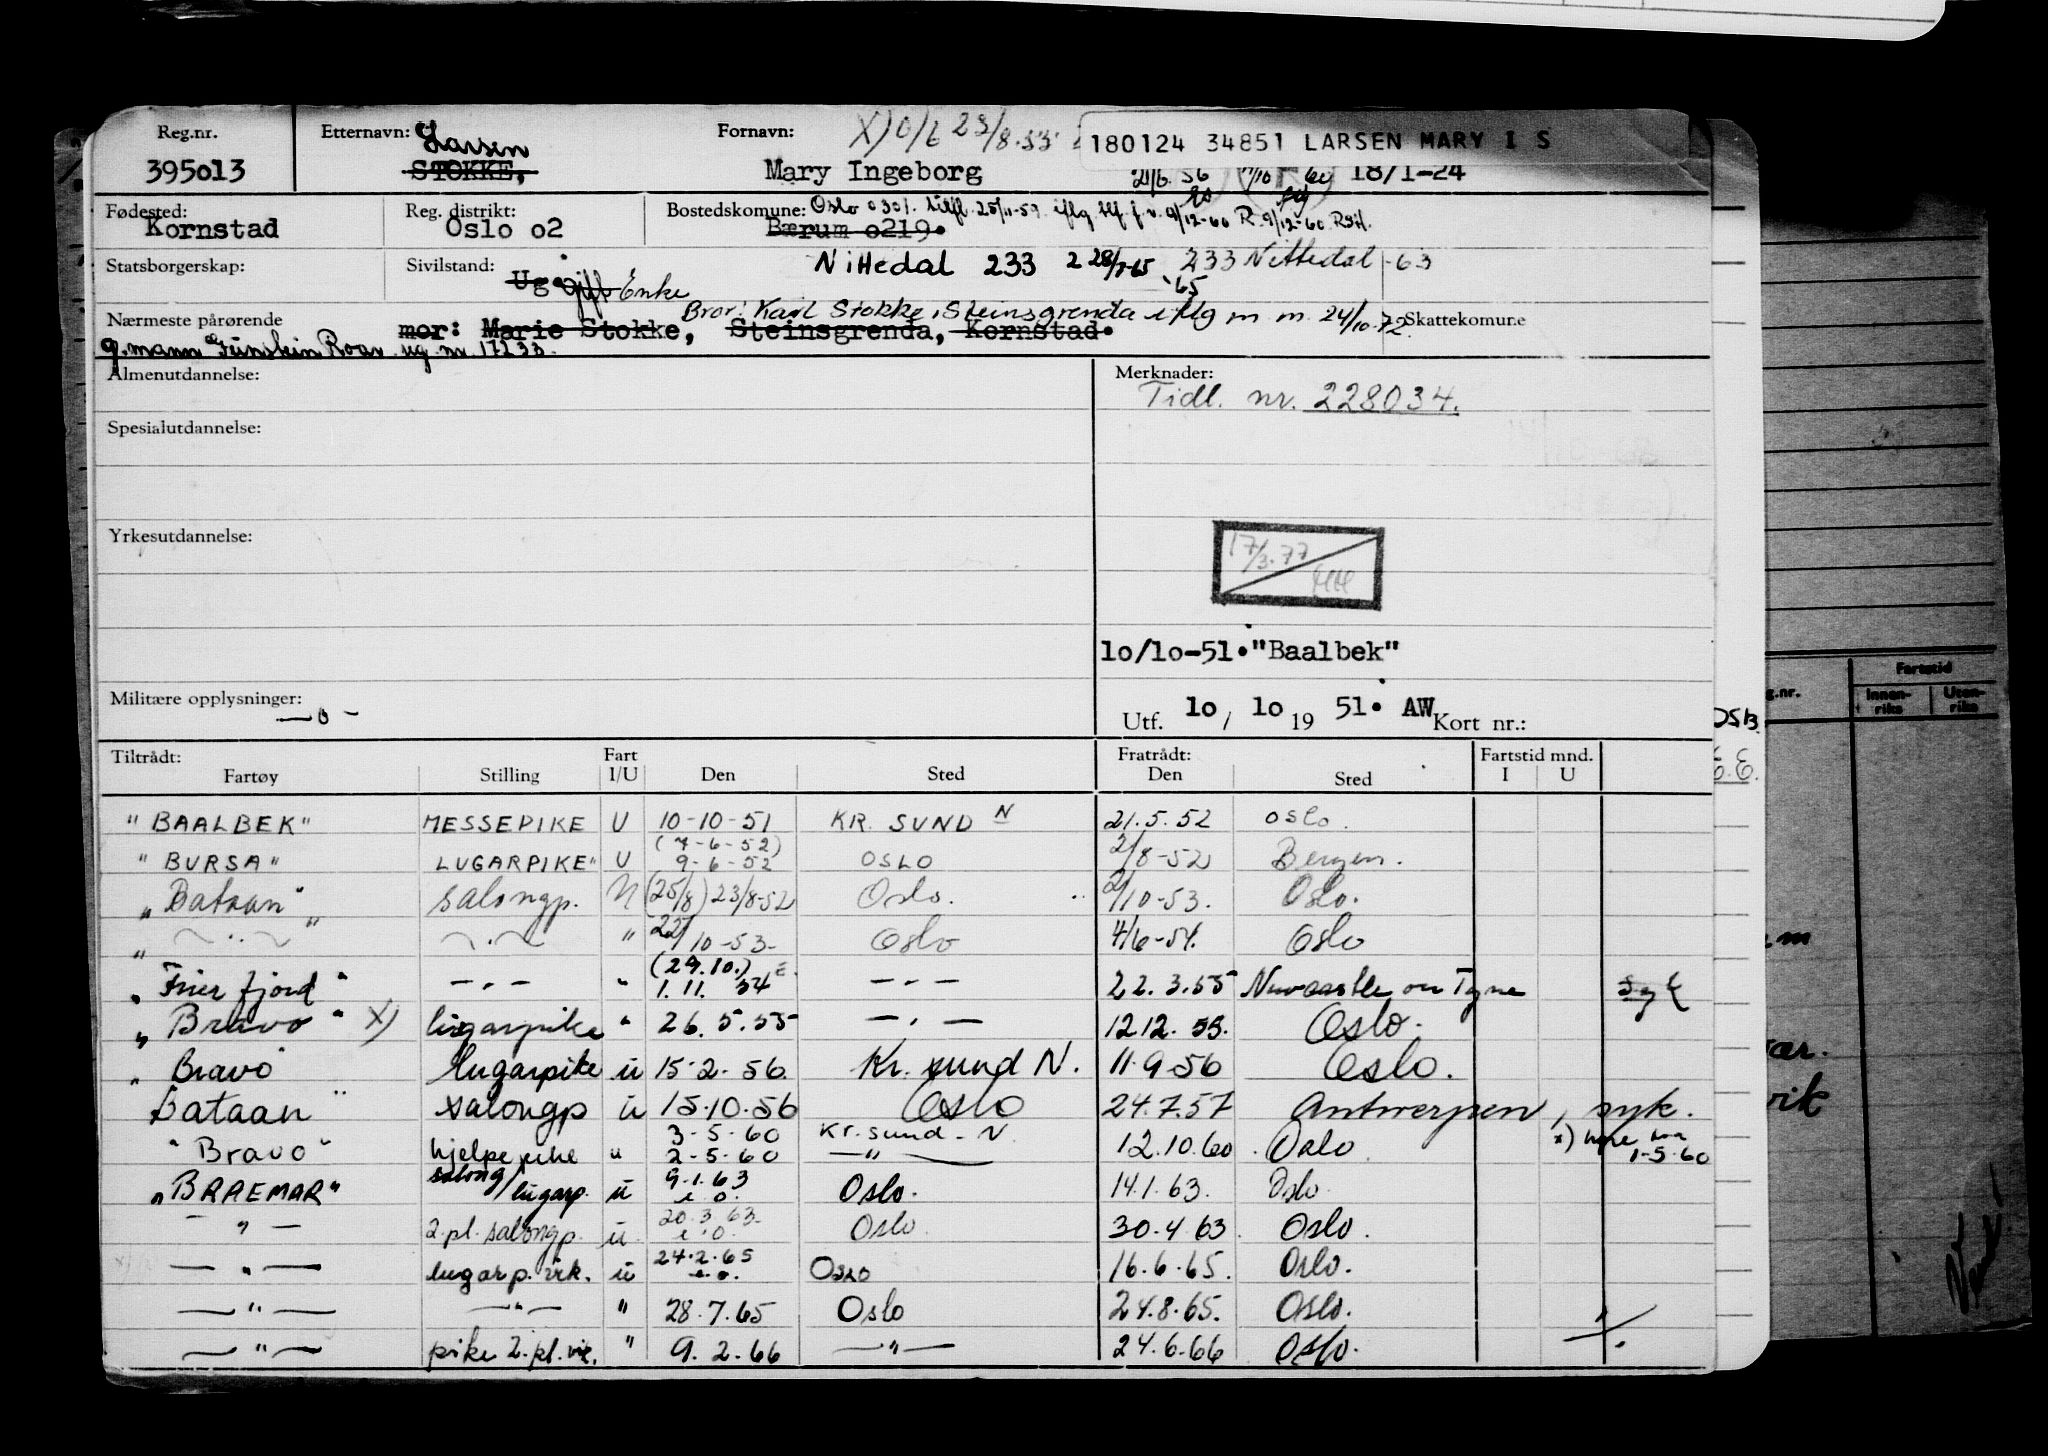 Reg.nr. Etternavn: Larsen Fornavn: X) 23/8-55 180124 34851 LARSEN MARY I S
395o13 STOKKE, Mary Ingeborg 18/1-24
Fødested: Reg. distrikt: Bostedskomune: Oslo 0301.
Kornstad Oslo o2 Bærum o219.
Statsborgerskap: Sivilstand: Ug. gift Enke Nittedal 233 2 28/7-65 233 Nittedal -63
65
Bror: Karl Stokke, Steinsgrenda iflg m m. 24/10.72
Nærmeste pårørende mor: Marie Stokke, Steinsgrenda, Kornstad. Skattekomune
Almenutdannelse: Merknader:
Tidl. nr. 228034.
Spesialutdannelse:
Yrkesutdannelse:
17/3.77
HH
1o/1o-51."Baalbek"
Militære opplysninger: —o-
Utf. 1o / 1o 19 51. AW Kort nr.:
Tiltrådt: Fart Fratrådt: Fartstid mnd.
Fartøy Stilling I/U Den Sted Den Sted I U
"BAALBEK" MESSEPIKE U 10-10-51 KR. SUND N 21.5.52 Oslo.
"BURSA" LUGARPIKE U (7-6-52) 9-6-52 OSLO 2/8-52 Bergen.
"Bataan" salongp. U (25/8) 23/8-52 Oslo. 2/10-53. Oslo.
" ~ " ~ " ~ " ~ " 22/10-53- Oslo 4/6-54. Oslo
"Frierfjord" — " — " (29.10.) 1.11. 54 — " — 22.3.55 Newcastle on Tyne
"Bravo" X) lugarpike " 26.5.55 — " — 12 12. 55. Oslo.
"Bravo" lugarpike u 15-2-56. Kr. sund N. 11-9-56 Oslo.
Bataan " salongp u 15.10.56 Oslo 24.7.57 Antwerpen, syk.
"Bravo" hjelpepike u 3-5-60 2-5-60 Kr. sund - N. — " — 12.10.60 Oslo x) 1-5-60
"BRAEMAR" salong/lugarp. u 9.1.63 e.o. Oslo. 14.1.63. Oslo
— " — 2.pl. salongp. u 20.3.63. e.o. Oslo 30.4.63 Oslo.
— " — lugarp. vik. u 24.2.65 e.o. Oslo 16.6.65. Oslo.
— " — — " — " 28.7.65 Oslo 24.8.65. Oslo.
— " — pike 2.pl. vik. " 9.2.66 — " — 24.6.66 Oslo.
g.nr. Fartstid
Innen-riks Uten-riks